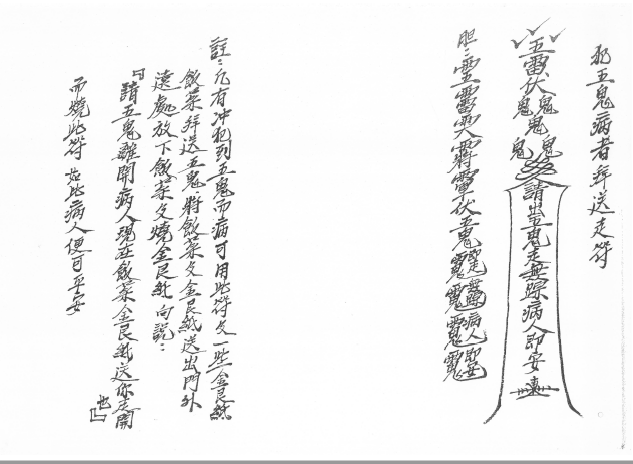 犯五鬼病者拜送走符
五雷伏鬼鬼鬼鬼鬼
請出五鬼走無踪病人即安
胆:
伏五鬼
病人即安
註:凡有冲犯到五鬼而病可用此符文一些金民紙
飯菜拜送五鬼.將飯菜文金民紙送出門外
遠處放下飯菜文燒金民紙向說:
「請五鬼離開病人現在飯菜金民紙送你走開
也」
而燒此符 如此病人便可平安